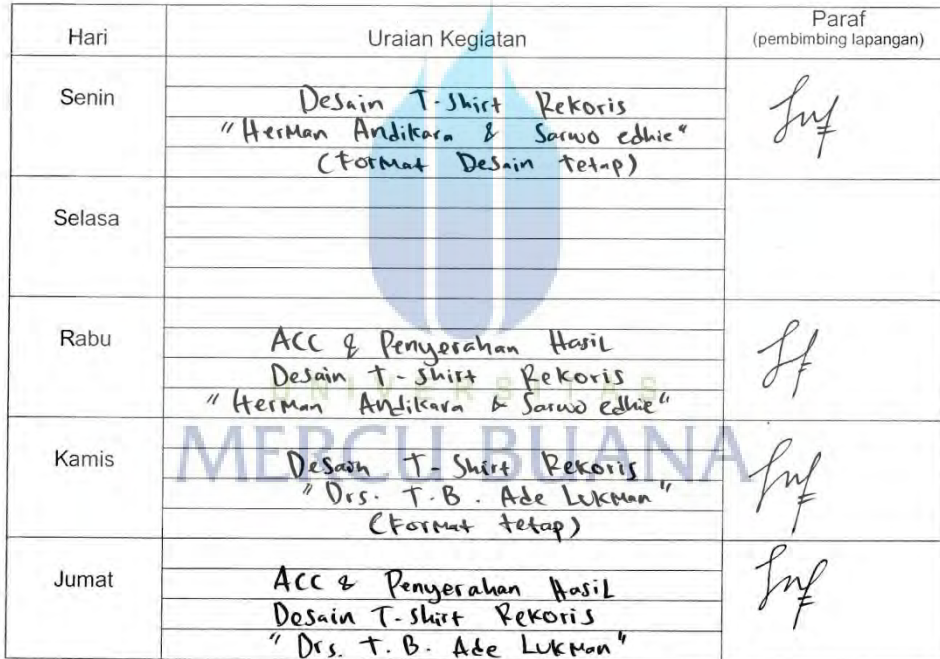 Hari
Uraian Kegiatan
Paraf
(pembimbing lapangan)
Senin
Desain T-Shirt Rekoris
"Herman Andikara & Sarwo edhie"
(Format Desain tetap)
Selasa
Rabu
ACC & Penyerahan Hasil
Desain T-Shirt Rekoris
"Herman Andikara & Sarwo edhie"
UNIVERSITAS
MERCU BUANA
Kamis
Desain T-Shirt Rekoris
"Drs. T.B. Ade Lukman"
(Format tetap)
Jumat
ACC & Penyerahan Hasil
Desain T-Shirt Rekoris
"Drs. T.B. Ade Lukman"